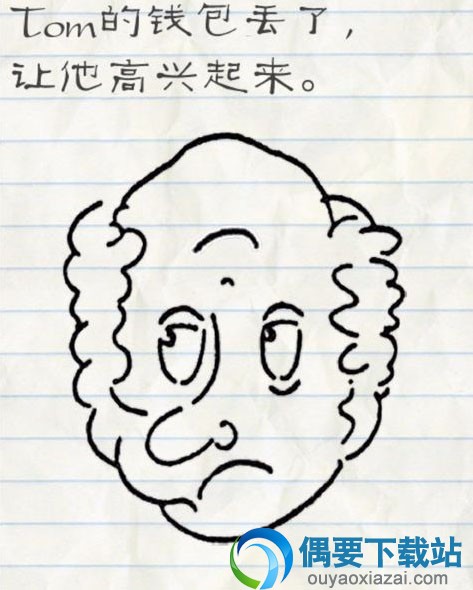 Tom的钱包丢了，
让他高兴起来。
偶要下载站
ouyaoxiazai.com